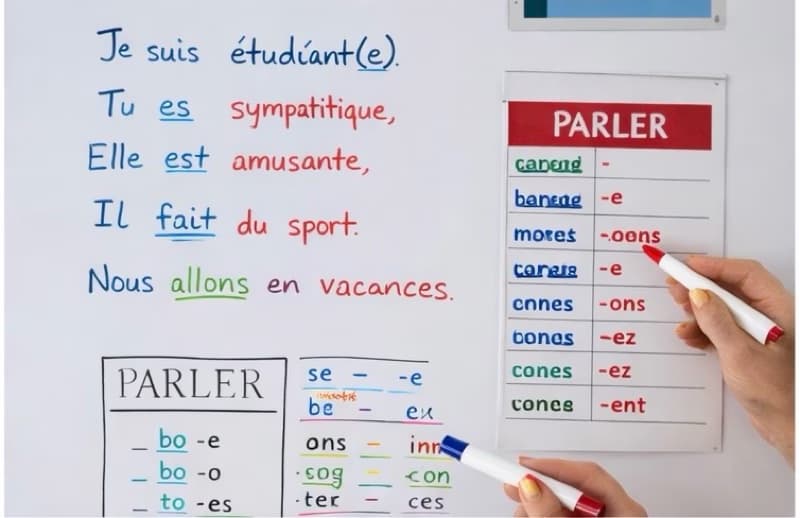 Je suis étudiant(e).
Tu es sympatitique,
Elle est amusante,
Il fait du sport.
Nous allons en vacances.
PARLER
-
-e
-.oons
-e
cnnes -ons
bonos -ez
cones -ez
conce -ent
PARLER
_ bo -e
_ bo -o
_ to -es
se - -e
be - eu
ons - inn
·sog - -con
·ter - ces